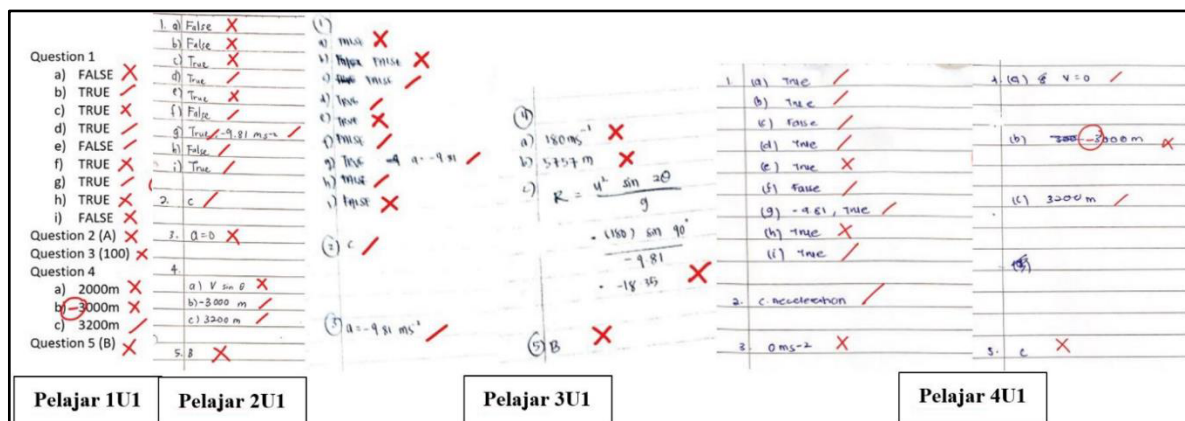 Question 1
a) FALSE
b) TRUE
c) TRUE
d) TRUE
e) FALSE
f) TRUE
g) TRUE
h) TRUE
i) FALSE
Question 2 (A)
Question 3 (100)
Question 4
a) 2000m
b) -3000m
c) 3200m
Question 5 (B)
Pelajar 1U1
1. a) False
b) False
c) True
d) True
e) True
f) False
g) True -9.81 ms⁻²
h) False
i) True
2. c
3. a=0
4.
a) V sin θ
b) -3000 m
c) 3200 m
5. B
Pelajar 2U1
①
a) FALSE
b) FALSE
c) FALSE
d) True
e) True
f) FALSE
g) True a = -9.81
h) FALSE
i) FALSE
② C
③ a = -9.81 ms⁻²
④
a) 180 ms⁻¹
b) 5757 m
c) R = u² sin 2θ
g
(180) sin 90°
-9.81
= -18.35
⑤ B
Pelajar 3U1
1. (a) True
(b) True
(c) False
(d) True
(e) True
(f) False
(g) -9.81, True
(h) True
(i) True
2. C. Acceleration
3. 0 ms-2
4. (a) V=0
(b) -3000m
(c) 3200m
5. C
Pelajar 4U1